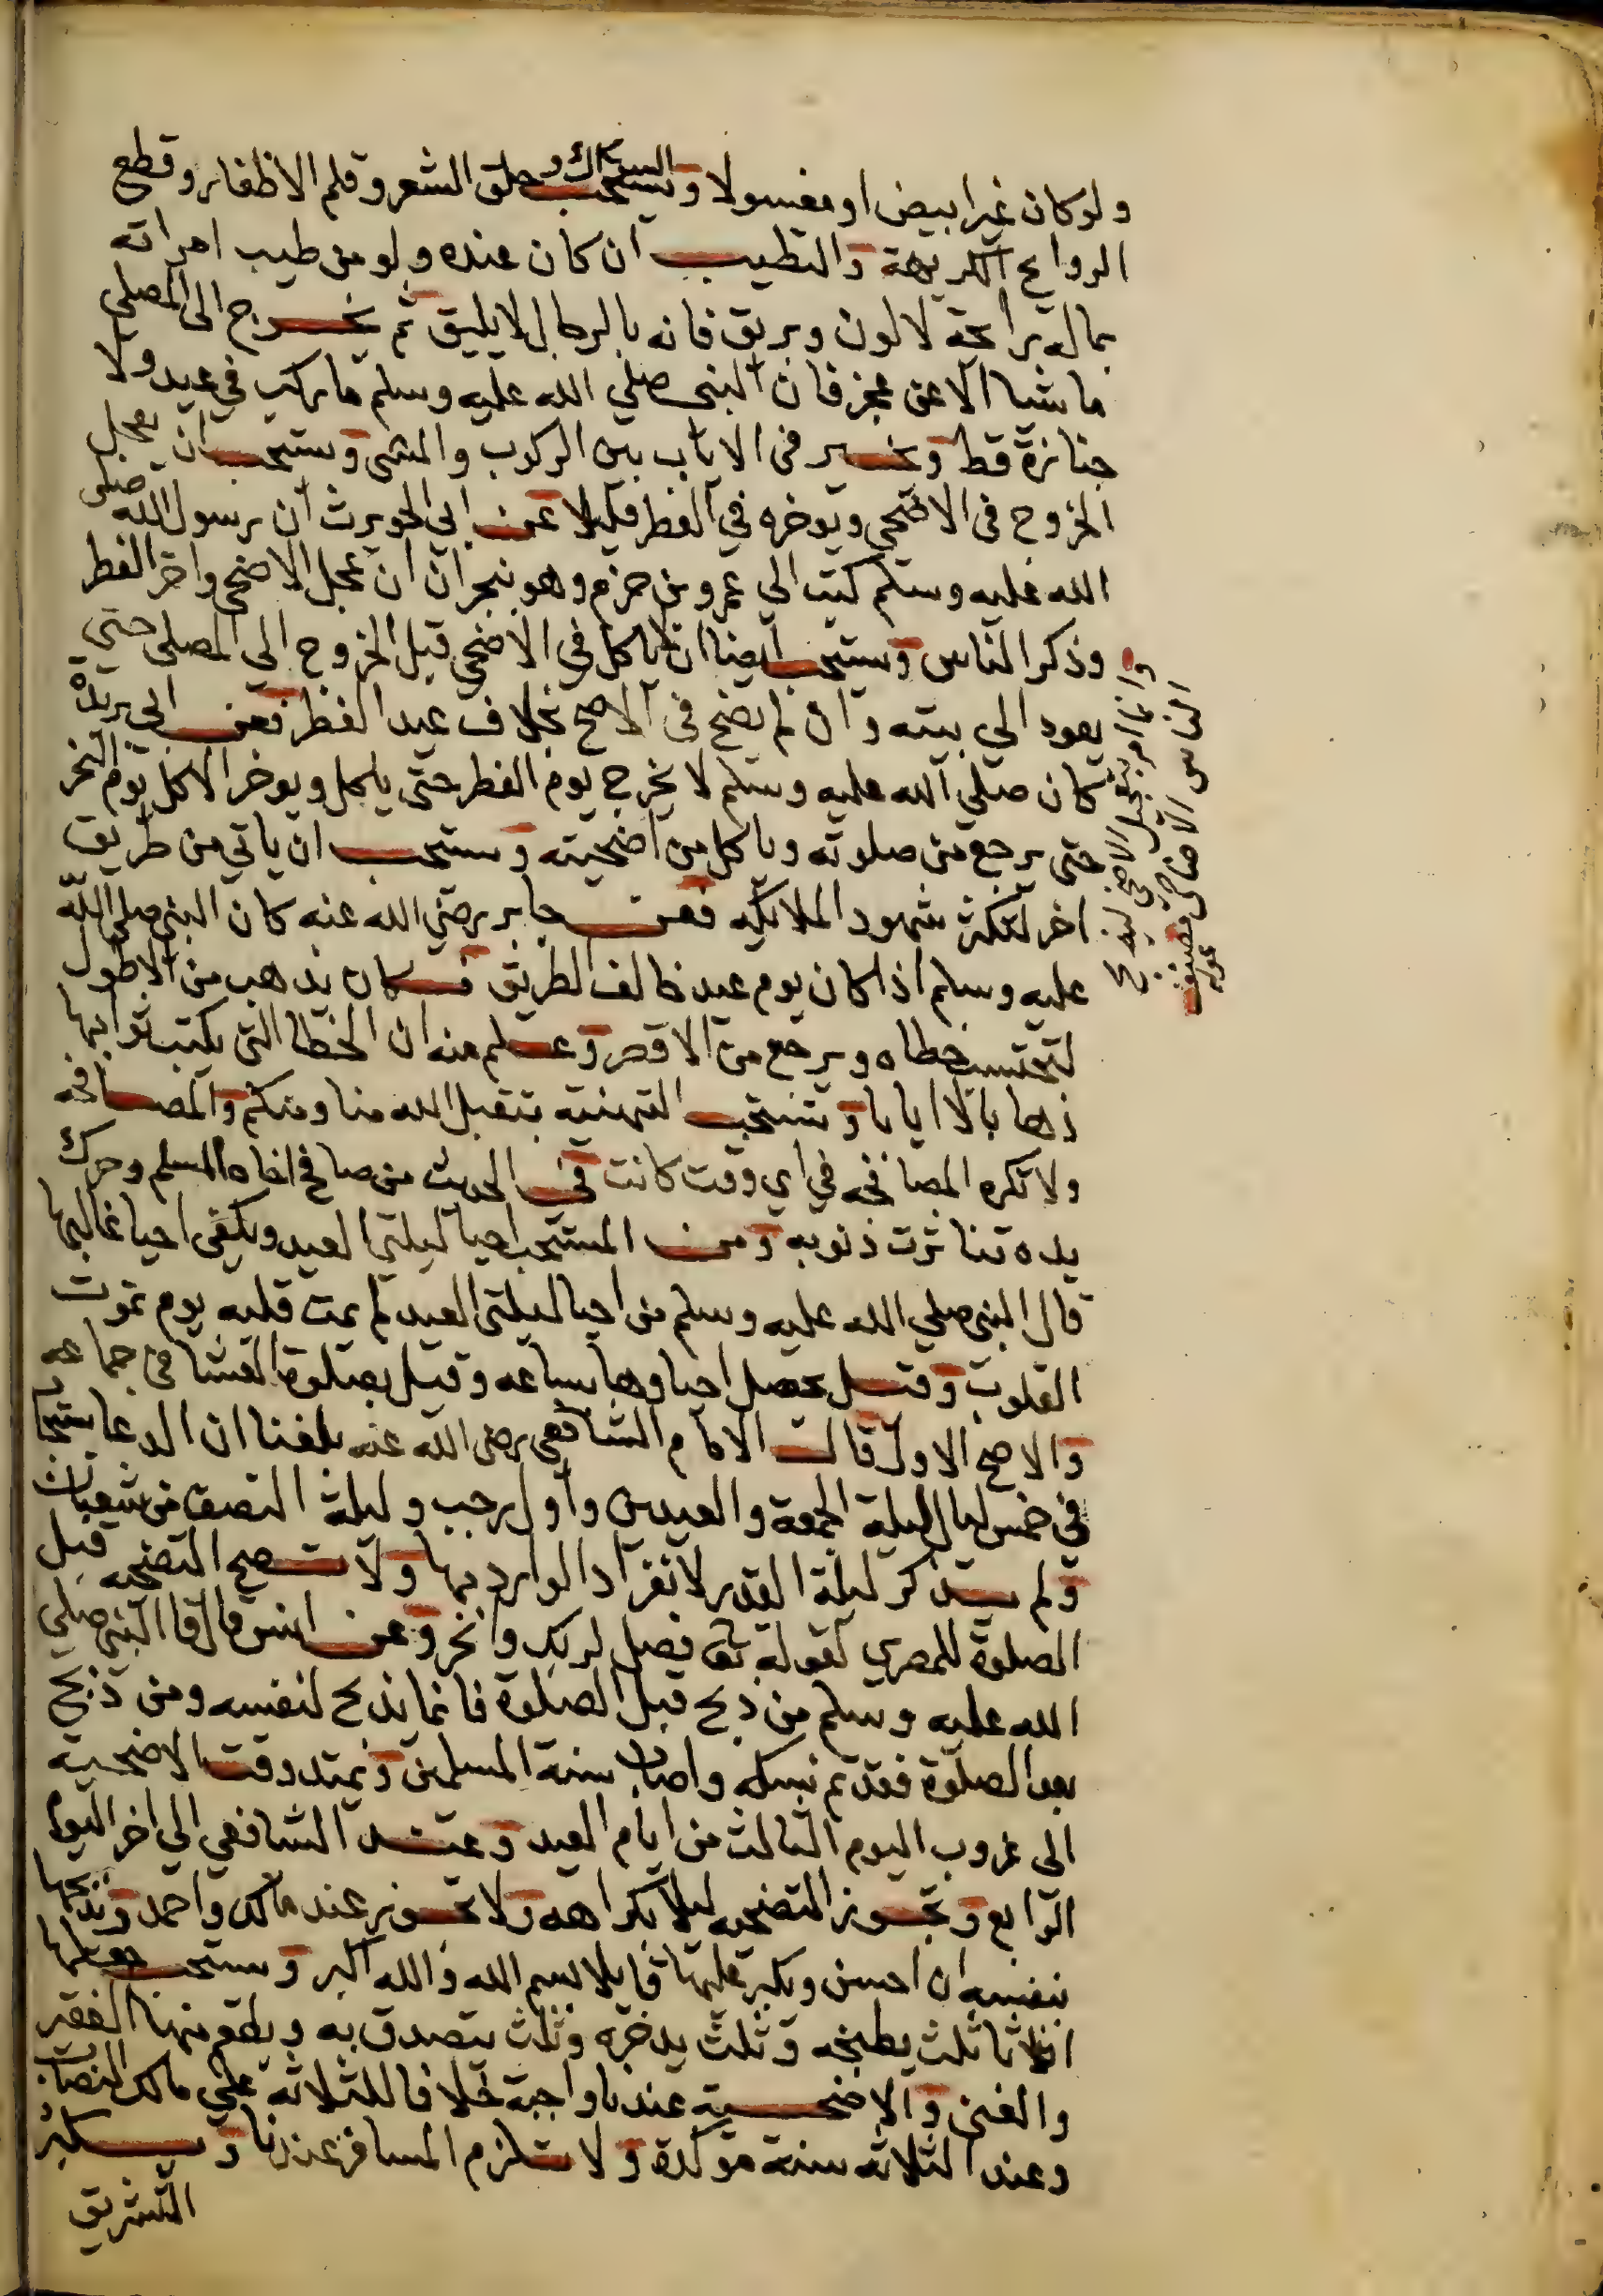 ولو كان غير ابيض او مغسولا ويستحب السواك و حلق الشعر وقلم الاظفار وقطع
الروايح الكريهة والتطيب ان كان عنده ولو من طيب امراته
بما له رايحة لا لون وبريق فانه بالرجال لا يليق ثم يخرج الى المصلي
ماشيا الا عن عجز فان النبي صلي الله عليه وسلم ما ركب في عيد ولا
جنازة قط ويخير في الاياب بين الركوب والمشي ويستحب ان يعجل
الخروج في الاضحي ويوخره في الفطر قليلا عن ابي الحويرث ان رسول الله صلى
الله عليه وسلم كتب الي عمرو بن حزم وهو بنجران ان عجل الاضحى واخر الفطر
وذكر الناس ويستحب ايضا ان لا ياكل في الاضحي قبل الخروج الي المصلى حتي
يعود الي بيته وان لم يضح في الاصح بخلاف عيد الفطر فعن ابي بريدة
كان صلي الله عليه وسلم لا يخرج يوم الفطر حتى ياكل ويوخر الاكل يوم النحر
حتى يرجع من صلوته وياكل من اضحيته ويستحب ان ياتي من طريق
اخر لتكثر شهود الملايكه فعن جابر رضي الله عنه كان النبي صلى الله
عليه وسلم اذا كان يوم عيد خالف الطريق فكان يذهب من الاطول
لتحتسب خطاه ويرجع من الاقصر وعلم منه ان الخطا التي يكتب ثوابها
ذهابا لا ايابا وتستحب التهنيه بتقبل الله منا ومنكم والمصافحه
ولا تكره المصافحه في اي وقت كانت ففي الحديث من صافح اخاه المسلم وحرك
يده تناثرت ذنوبه ومن المستحب احيا ليلتي العيد ويكفي احيا غالبها
قال النبي صلي الله عليه وسلم من احيا ليلتي العيد لم يمت قلبه يوم تموت
القلوب وقيل يحصل احياوها بساعه وقيل بصلوة العشا في جماعه
والاصح الاول قال الامام الشافعي رضى الله عنه بلغنا ان الدعا يستجاب
في خمس ليال ليلة الجمعة والعيدين واول رجب وليلة النصف من شعبان
ولم يذكر ليلة القدر لانفراد الوارد بها ولا تصح التضحيه قبل
الصلوة للمصري لقوله تعالى فصل لربك وانحر وعن انس قال قال النبي صلي
الله عليه وسلم من ذبح قبل الصلوة فانما يذبح لنفسه ومن ذبح
بعد الصلوة فقد تم نسكه واصاب سنة المسلمين ويمتد وقت الاضحية
الى غروب اليوم الثالث من ايام العيد وعند الشافعي الي اخر اليوم
الرابع وتجوز التضحيه ليلا بكراهه ولا تجوز عند مالك واحمد ويذبحها
بنفسه ان احسن ويكبر عليها قايلا بسم الله والله اكبر ويستحب جعلها
اثلاثا ثلث يطبخه وثلث يدخره وثلث يتصدق به ويطعم منها الفقير
والغني والاضحية عندنا واجبة خلافا للثلاثه علي مالك النصاب
وعند الثلاثه سنة موكدة ولا تلزم المسافر عندنا وتكبير
التشريق
وانما امر بتعجيل الاضحي ليذبح
الناس الاضاحي